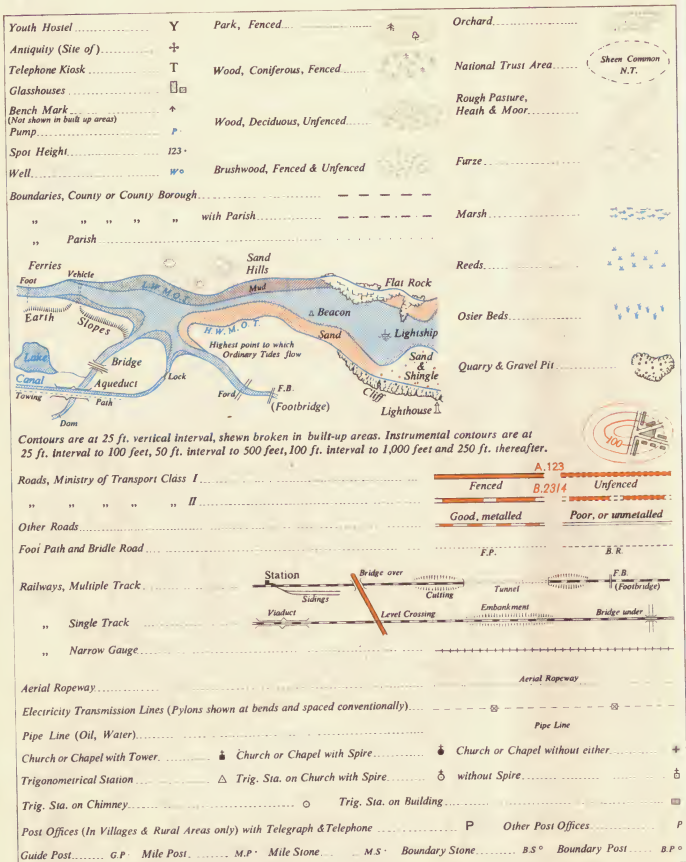 Youth Hostel Y
Antiquity (Site of) ✢
Telephone Kiosk T
Glasshouses
Bench Mark
(Not shown in built up areas)
Pump P
Spot Height 123 ·
Well W o
Park, Fenced
Wood, Coniferous, Fenced
Wood, Deciduous, Unfenced
Brushwood, Fenced & Unfenced
Orchard
National Trust Area Sheen Common
N.T.
Rough Pasture,
Heath & Moor
Furze
Marsh
Reeds
Osier Beds
Quarry & Gravel Pit
Boundaries, County or County Borough
,, ,, ,, ,, ,, with Parish
,, Parish
Ferries
Foot Vehicle
Earth Slopes
L.W.M.O.T.
Sand
Hills
Mud
Flat Rock
Beacon
H.W.M.O.T.
Sand
Lightship
Highest point to which
Ordinary Tides flow
Lake
Bridge
Canal
Aqueduct
Lock
Towing Path
Dam
Ford
F.B.
(Footbridge)
Sand
&
Shingle
Cliff
Lighthouse
100
Contours are at 25 ft. vertical interval, shewn broken in built-up areas. Instrumental contours are at
25 ft. interval to 100 feet, 50 ft. interval to 500 feet, 100 ft. interval to 1,000 feet and 250 ft. thereafter.
A.123
Roads, Ministry of Transport Class I
Fenced B.2314 Unfenced
,, ,, ,, ,, ,, II
Good, metalled Poor, or unmetalled
Other Roads
Foot Path and Bridle Road F.P. B.R.
Railways, Multiple Track
Station
Sidings
Bridge over
Cutting
Tunnel
F.B.
(Footbridge)
,, Single Track
Viaduct
Level Crossing
Embankment
Bridge under
,, Narrow Gauge
Aerial Ropeway Aerial Ropeway
Electricity Transmission Lines (Pylons shown at bends and spaced conventionally)
Pipe Line (Oil, Water) Pipe Line
Church or Chapel with Tower Church or Chapel with Spire Church or Chapel without either
Trigonometrical Station Trig. Sta. on Church with Spire without Spire
Trig. Sta. on Chimney Trig. Sta. on Building
Post Offices (In Villages & Rural Areas only) with Telegraph & Telephone P Other Post Offices P
Guide Post G.P. Mile Post M.P. Mile Stone M.S. Boundary Stone B.S. Boundary Post B.P.